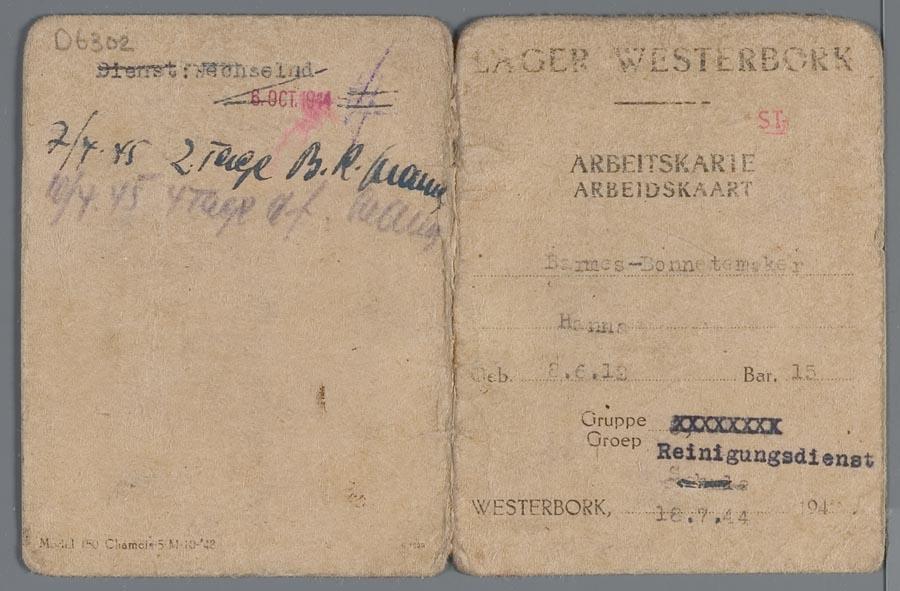 D6302
Dienst: Wechselnd
6. OCT. 1944
7/4.45 2 Tage B.R.
10/4.45 4 Tage
Model 150 Chamois 5 M-10-'42
LAGER WESTERBORK
ST.
ARBEITSKARTE
ARBEIDSKAART
Barmes-Bonnetemaker
Hanna
Geb. 8.6.12 Bar. 15
Gruppe XXXXXXXX
Groep
Reinigungsdienst
WESTERBORK, 18.7.44 194